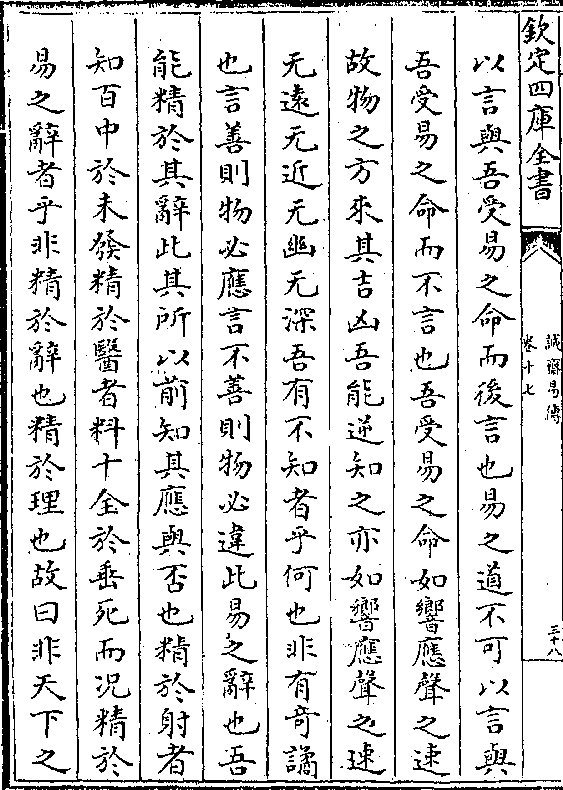 欽定四庫全書
誠齋易傳
卷十七
三十八
以言與吾受易之命而後言也易之道不可以言與
吾受易之命而不言也吾受易之命如響應聲之速
故物之方來其吉凶吾能逆知之亦如響應聲之速
无遠无近无幽无深吾有不知者乎何也非有奇譎
也言善則物必應言不善則物必違此易之辭也吾
能精於其辭此其所以前知其應與否也精於射者
知百中於未發精於醫者料十全於垂死而况精於
易之辭者乎非精於辭也精於理也故曰非天下之